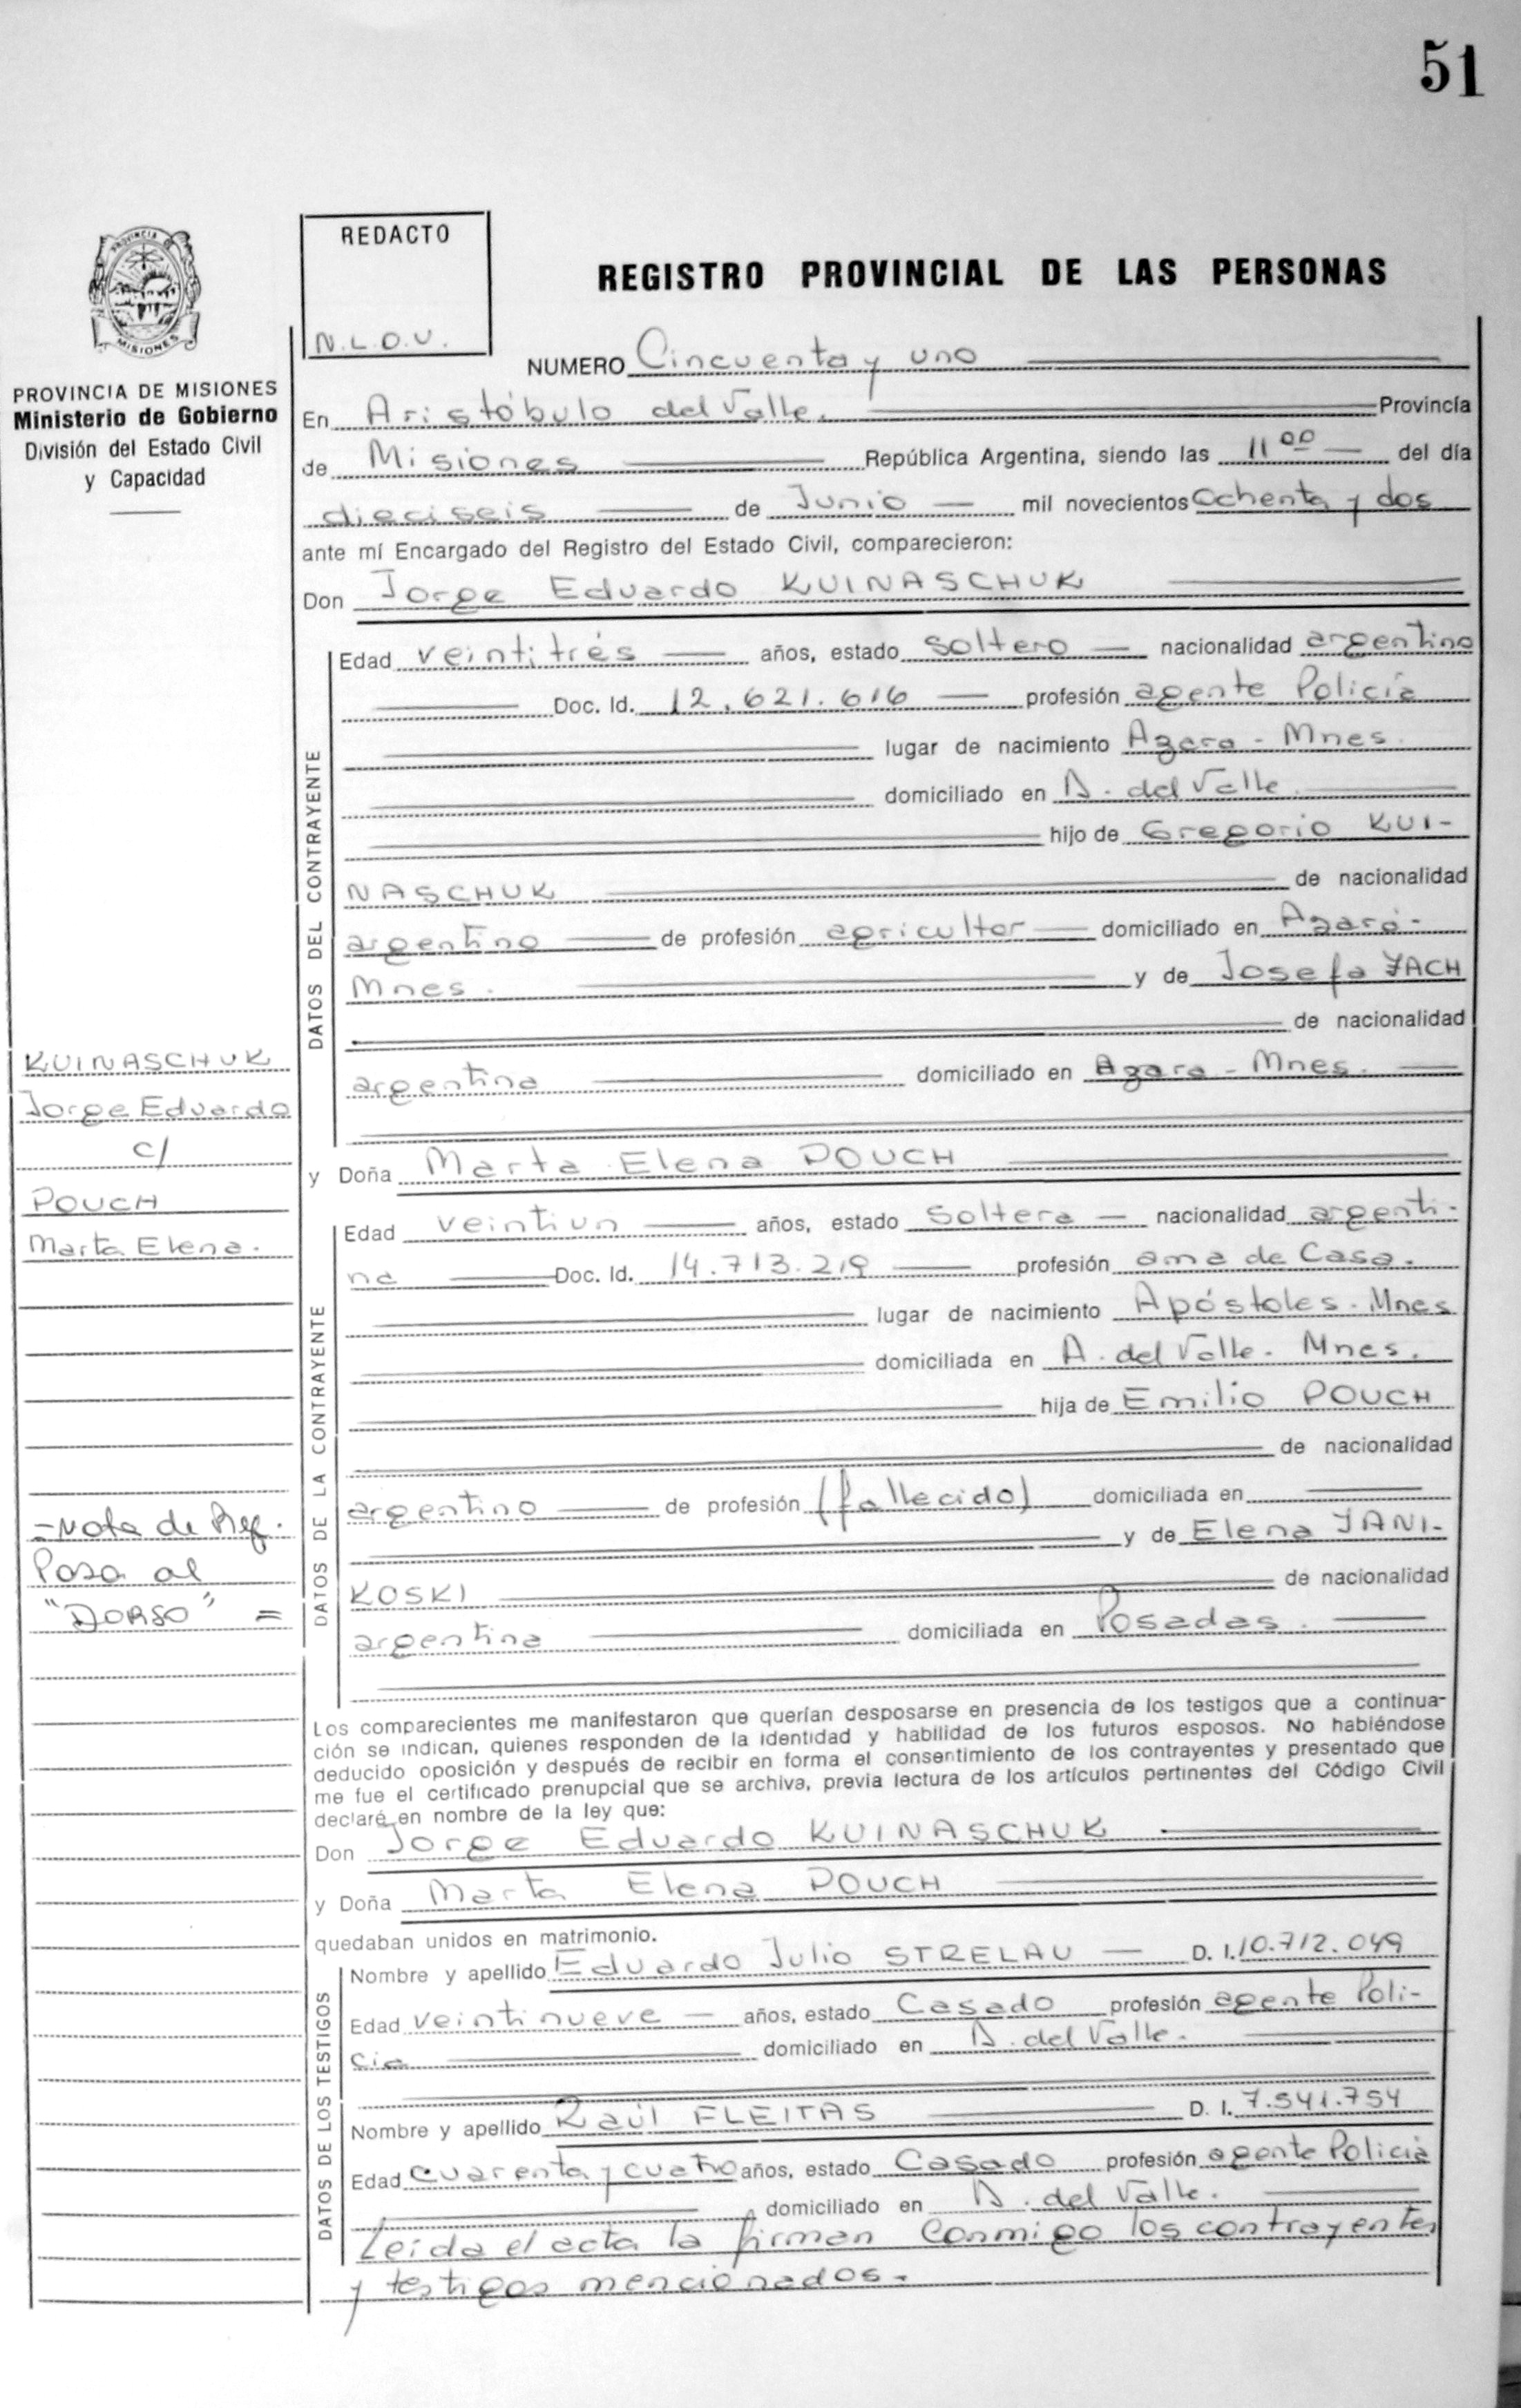 51
REDACTO
N.L.D.V.
REGISTRO PROVINCIAL DE LAS PERSONAS
PROVINCIA
MISIONES
PROVINCIA DE MISIONES
Ministerio de Gobierno
División del Estado Civil
y Capacidad
NUMERO Cincuenta y uno
En Aristóbulo del Valle. Provincia
de Misiones República Argentina, siendo las 11 00 del día
dieciseis de Junio mil novecientos Ochenta y dos
ante mí Encargado del Registro del Estado Civil, comparecieron:
Don Jorge Eduardo KUINASCHUK
DATOS DEL CONTRAYENTE
Edad veintitrés años, estado soltero nacionalidad argentino
Doc. Id. 12.621.616 profesión agente Policía
lugar de nacimiento Azara - Mnes.
domiciliado en A. del Valle.
hijo de Gregorio KUI-
NASCHUK de nacionalidad
argentino de profesión agricultor domiciliado en Azara -
Mnes. y de Josefa JACH
de nacionalidad
argentina domiciliado en Azara - Mnes.
KUINASCHUK
Jorge Eduardo
c/
POUCH
Marta Elena.
y Doña Marta Elena POUCH
DATOS DE LA CONTRAYENTE
Edad veintiun años, estado soltera nacionalidad argenti-
na Doc. Id. 14.713.219 profesión ama de Casa.
lugar de nacimiento Apóstoles - Mnes
domiciliada en A. del Valle - Mnes.
hija de Emilio POUCH
de nacionalidad
argentino de profesión (fallecido) domiciliada en
y de Elena JANI-
KOSKI de nacionalidad
argentina domiciliada en Posadas.
=Nota de Ref.
Pasa al
"DORSO" =
Los comparecientes me manifestaron que querían desposarse en presencia de los testigos que a continua-
ción se indican, quienes responden de la identidad y habilidad de los futuros esposos. No habiéndose
deducido oposición y después de recibir en forma el consentimiento de los contrayentes y presentado que
me fue el certificado prenupcial que se archiva, previa lectura de los artículos pertinentes del Código Civil
declaré en nombre de la ley que:
Don Jorge Eduardo KUINASCHUK
y Doña Marta Elena POUCH
quedaban unidos en matrimonio.
DATOS DE LOS TESTIGOS
Nombre y apellido Eduardo Julio STRELAU D. I. 10.712.049
Edad veintinueve años, estado Casado profesión agente Poli-
cia domiciliado en A. del Valle.
Nombre y apellido Raúl FLEITAS D. I. 7.541.754
Edad cuarenta y cuatro años, estado Casado profesión agente Policia
domiciliado en A. del Valle.
Leida el acta la firman conmigo los contrayentes
y testigos mencionados.